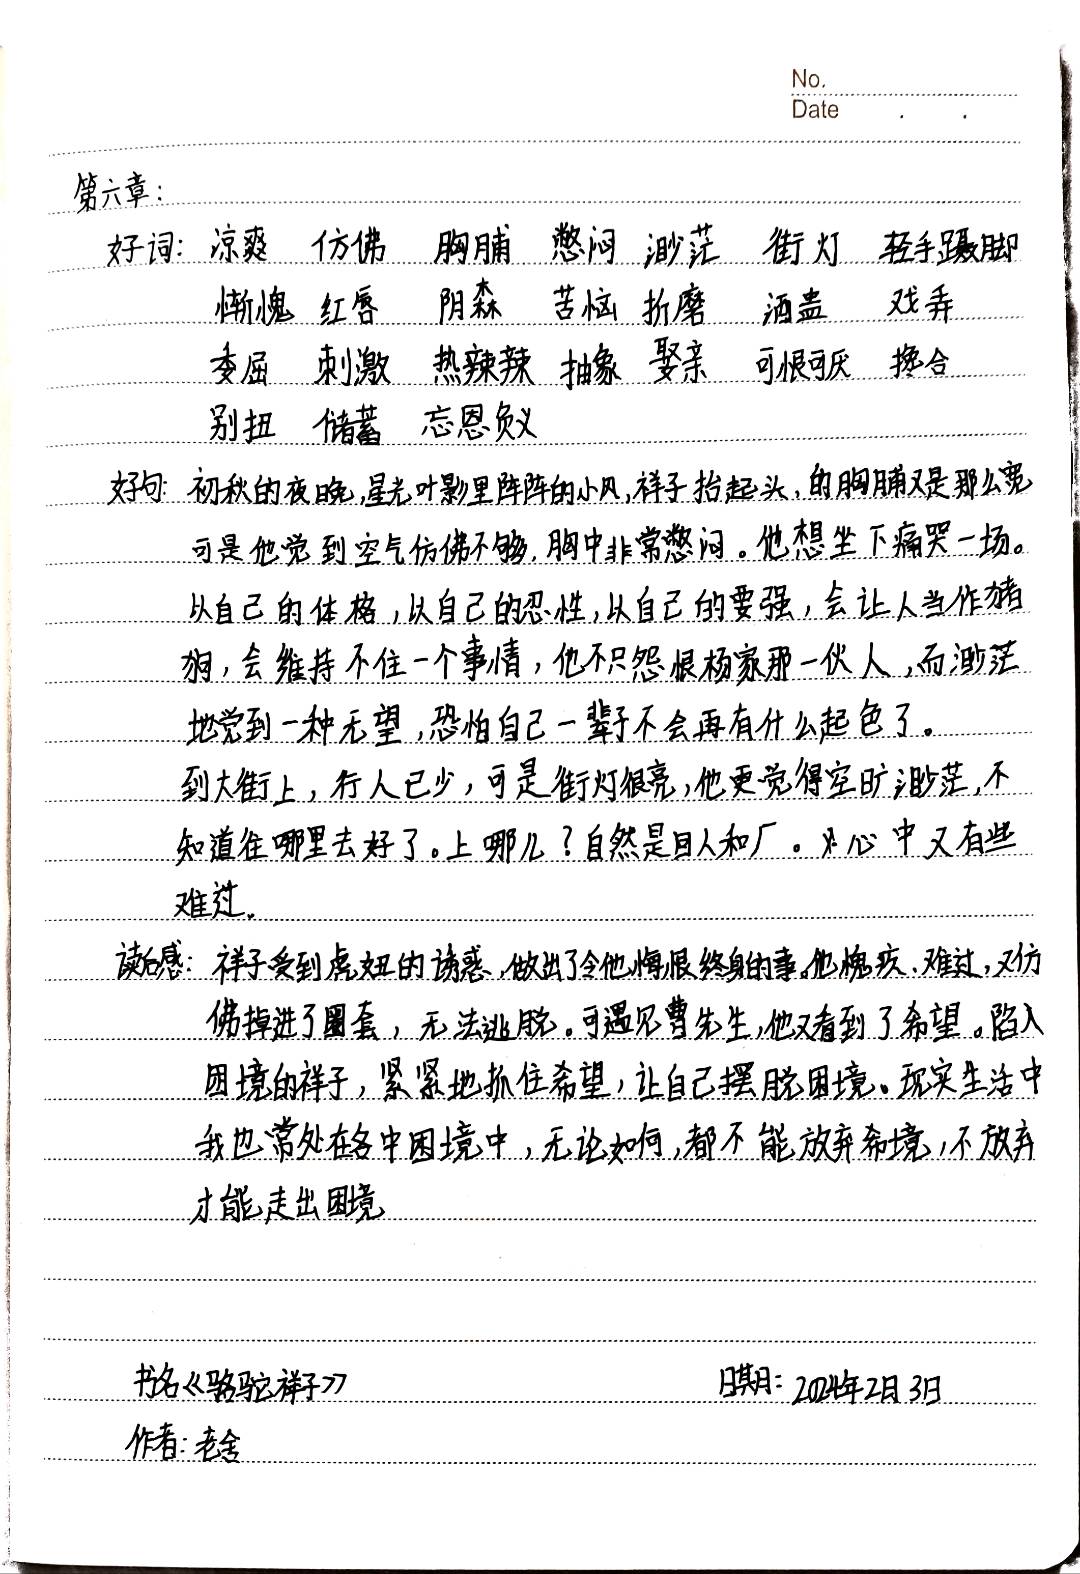 No.
Date . .
第六章：
好词：凉爽 仿佛 胸脯 憋闷 渺茫 街灯 轻手蹑脚
惭愧 红唇 阴森 苦恼 折磨 酒盅 戏弄
委屈 刺激 热辣辣 抽象 娶亲 可恨可厌 搀合
别扭 储蓄 忘恩负义
好句：初秋的夜晚，星光叶影里阵阵的小风，祥子抬起头，的胸脯又是那么宽
可是他觉到空气仿佛不够，胸中非常憋闷。他想坐下痛哭一场。
以自己的体格，以自己的忍性，以自己的要强，会让人当作猪
狗，会维持不住一个事情，他不只怨恨杨家那一伙人，而渺茫
地觉到一种无望，恐怕自己一辈子不会再有什么起色了。
到大街上，行人已少，可是街灯很亮，他更觉得空旷渺茫，不
知道往哪里去好了。上哪儿？自然是回人和厂。心中又有些
难过。
读后感：祥子受到虎妞的诱惑，做出了令他悔恨终身的事。他愧疚、难过，又仿
佛掉进了圈套，无法逃脱。可遇见曹先生，他又看到了希望。陷入
困境的祥子，紧紧地抓住希望，让自己摆脱困境。现实生活中
我也常处在各中困境中，无论如何，都不能放弃希境，不放弃
才能走出困境
书名《骆驼祥子》 日期：2024年2月3日
作者：老舍